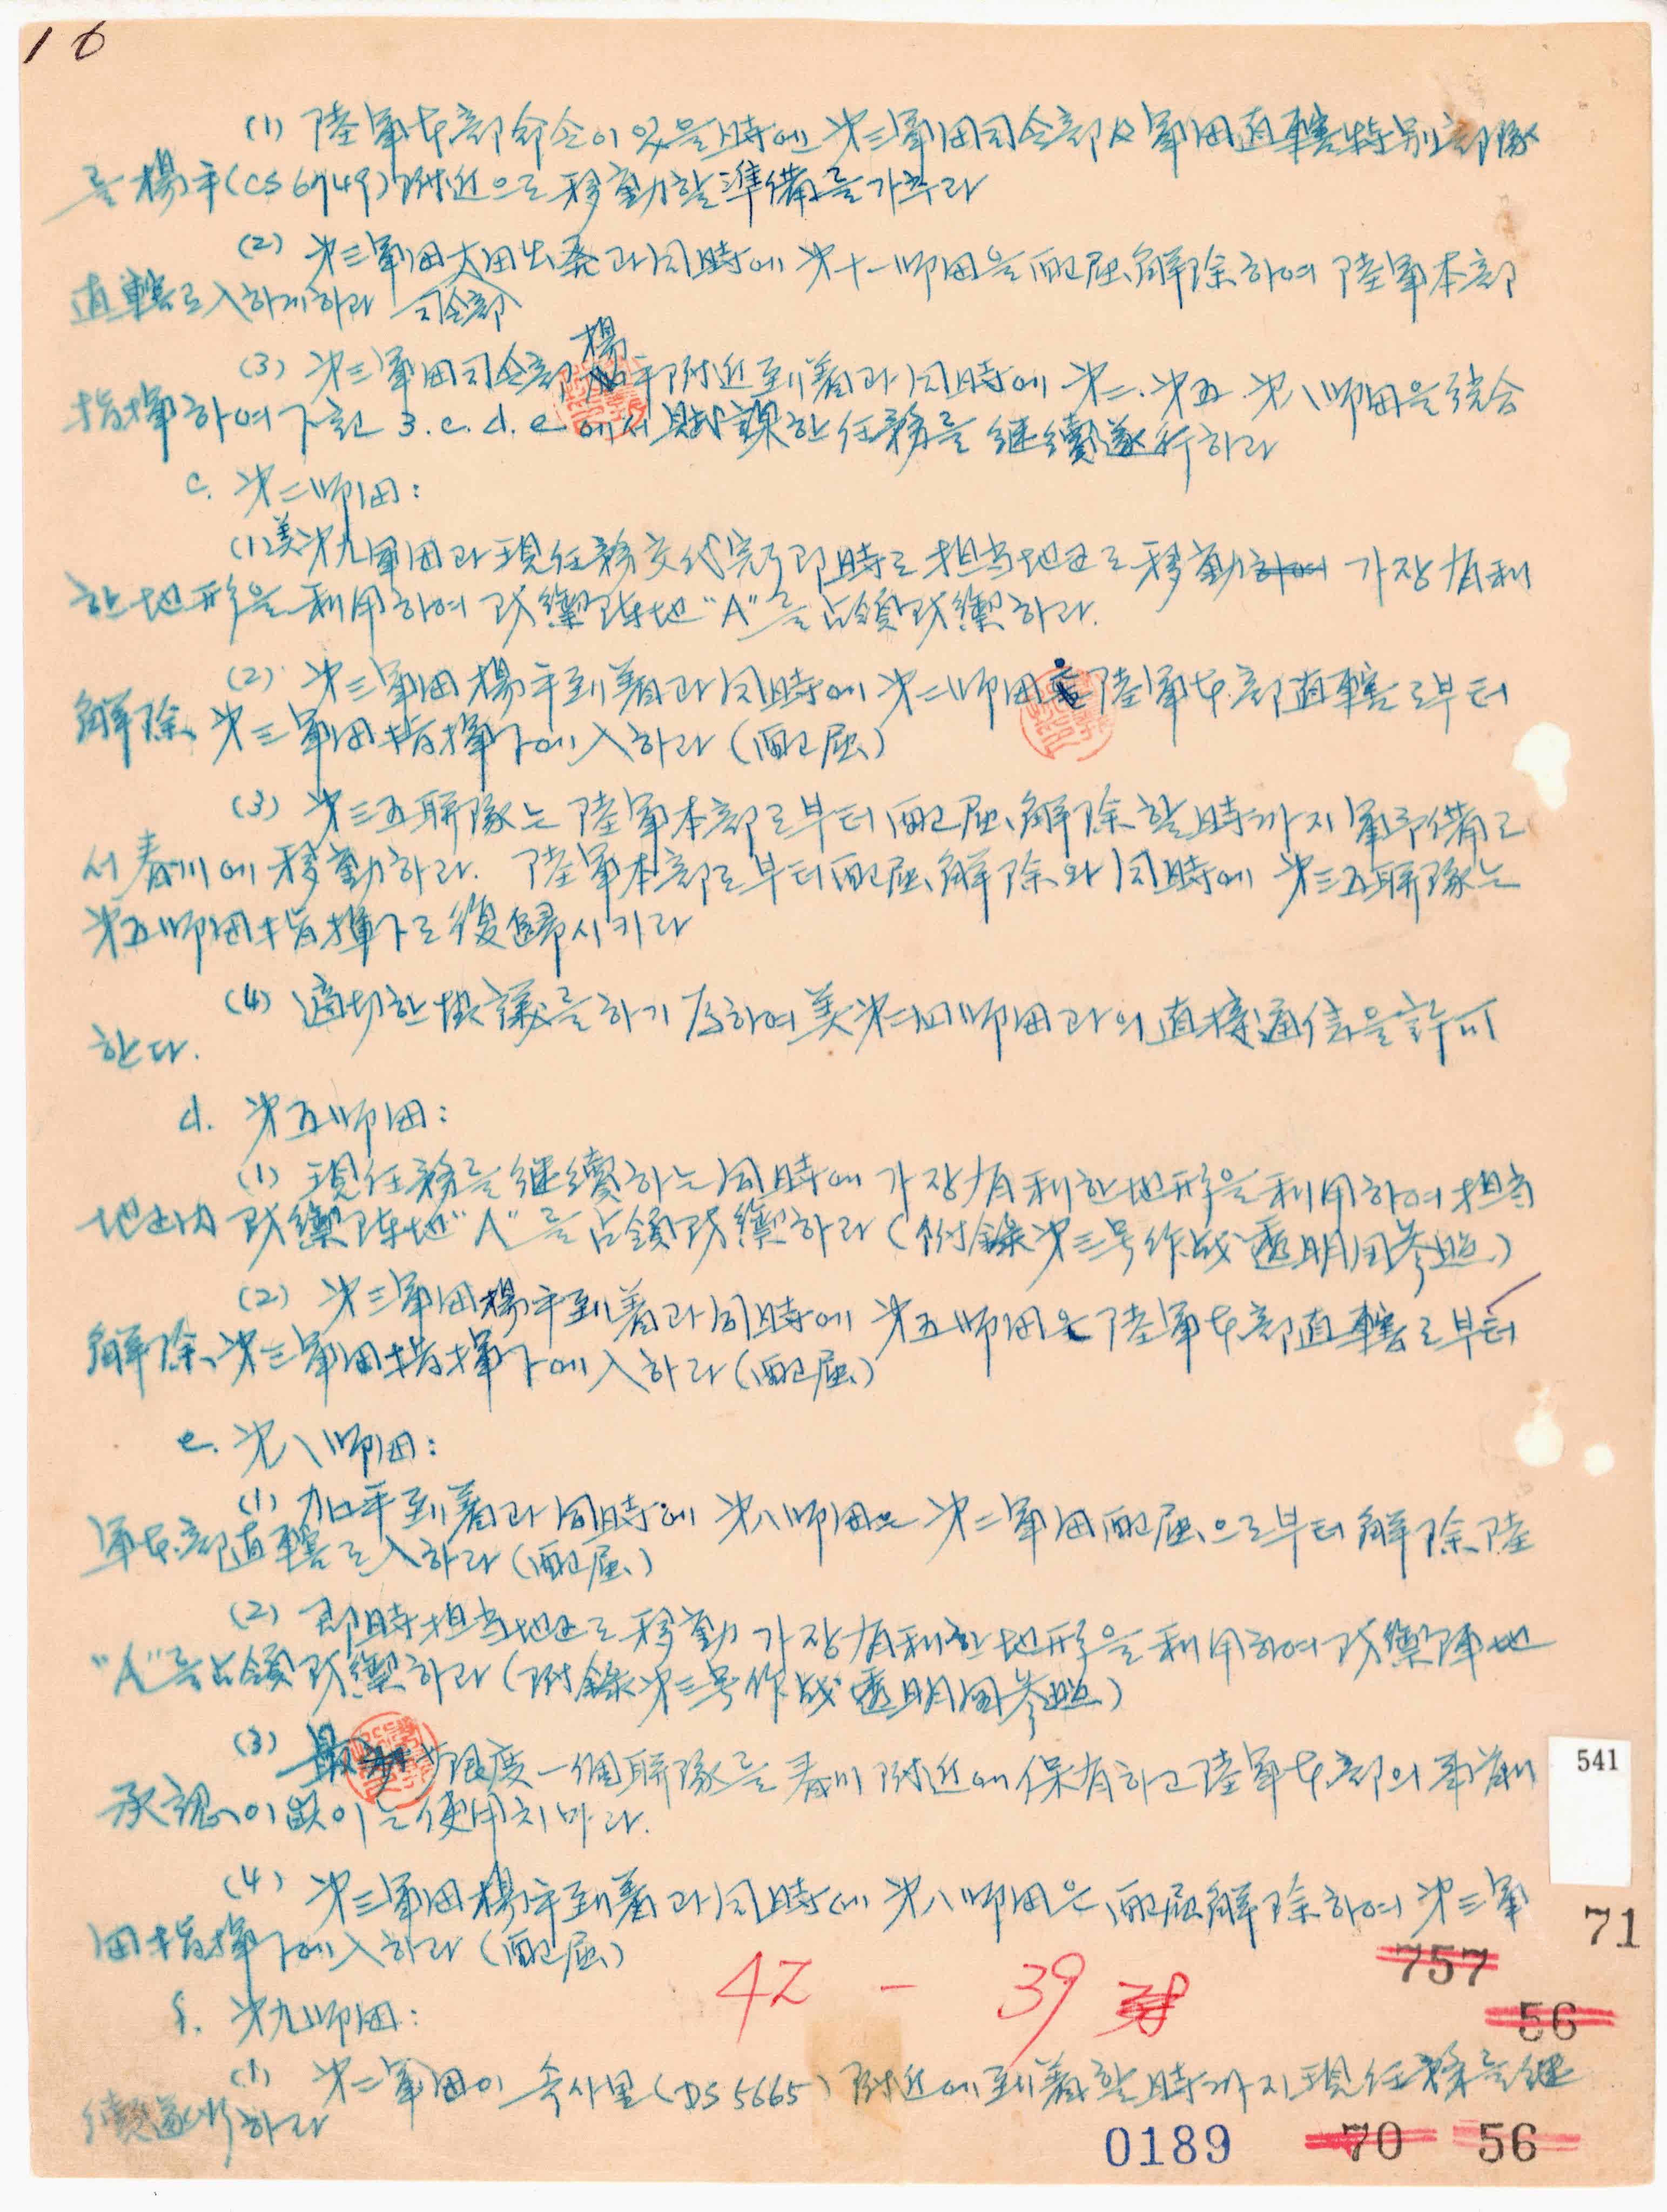 16
(1) 陸軍本部命令이 있을 時에 第三軍団司令部 及 軍団直轄特別部隊
를 楊平(CS 6749) 附近으로 移動할 準備를 가추라
(2) 第三軍団 大田出発과 同時에 第十一師団을 配屈 解除하여 陸軍本部
直轄로 入하게 하라 司令部
楊
(3) 第三軍団司令部 平附近 到着과 同時에 第二. 第五. 第八師団을 統合
指揮하여 下記 3. c. d. e 에서 賦課한 任務를 継續遂行하라
c. 第二師団:
(1) 美第九軍団과 現任務交代完了 即時로 担当地区로 移動하여 가장 有利
한 地形을 利用하여 防禦陣地 "A"를 占領防禦하라.
(2) 第三軍団 楊平到着과 同時에 第二師団은 陸軍本部直轄로부터
解除、第三軍団指揮下에 入하라 (配屈)
(3) 第三五聯隊는 陸軍本部로부터 配屈 解除할 時까지 軍予備로
서 春川에 移動하라. 陸軍本部로부터 配屈 解除와 同時에 第三五聯隊는
第五師団指揮下로 復歸시키라
(4) 適切한 協議를 하기 為하여 美第二四師団과의 直接通信을 許可
한다.
d. 第五師団:
(1) 現任務를 継續하는 同時에 가장 有利한 地形을 利用하여 担当
地区内 防禦陣地 "A"를 占領防禦하라 (附錄第三号作战透明図参照)
(2) 第三軍団 楊平到着과 同時에 第五師団은 陸軍本部直轄로부터
解除、第三軍団指揮下에 入하라 (配屈)
e. 第八師団:
(1) 加平到着과 同時에 第八師団은 第二軍団配屈으로부터 解除、陸
軍本部直轄로 入하라 (配屈)
(2) 即時担当地区로 移動 가장 有利한 地形을 利用하여 防禦陣地
"A"를 占領防禦하라 (附錄第三号作战透明図参照)
(3) 最少限度一個聯隊를 春川附近에 保有하고 陸軍本部의 事前
承認이 없이는 使用치마라.
(4) 第三軍団 楊平到着과 同時에 第八師団은 配屈解除하여 第三軍
団指揮下에 入하라 (配屈)
f. 第九師団:
(1) 第二軍団이 束沙里(DS 5665) 附近에 到着할 時까지 現任務를 継
續遂行하라
42 - 39
541
71
757
56
0189
70
56